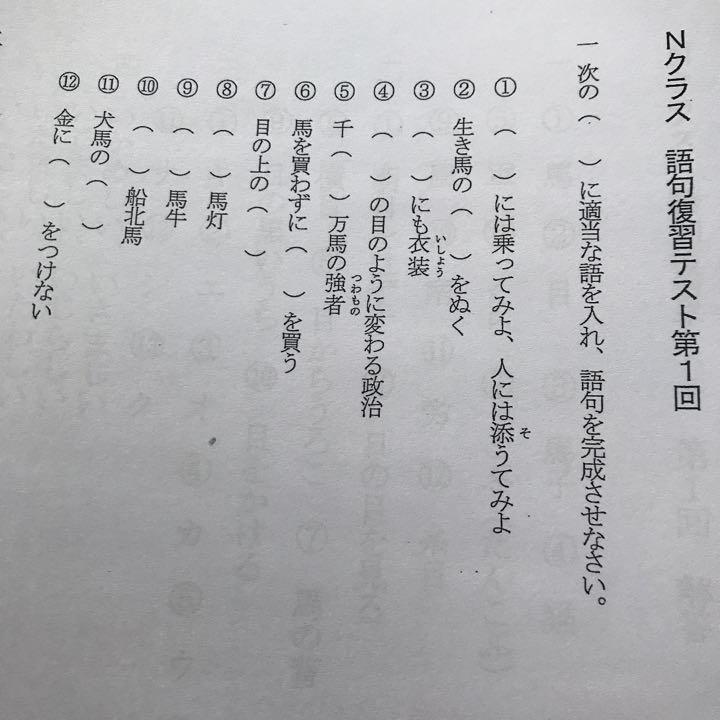 Nクラス 語句復習テスト第1回
一 次の( )に適当な語を入れ、語句を完成させなさい。
① ( )には乗ってみよ、人には添うてみよ
そ
② 生き馬の( )をぬく
③ ( )にも衣装
いしょう
④ ( )の目のように変わる政治
⑤ 千( )万馬の強者
つわもの
⑥ 馬を買わずに( )を買う
⑦ 目の上の( )
⑧ ( )馬灯
⑨ ( )馬牛
⑩ ( )船北馬
⑪ 犬馬の( )
⑫ 金に( )をつけない